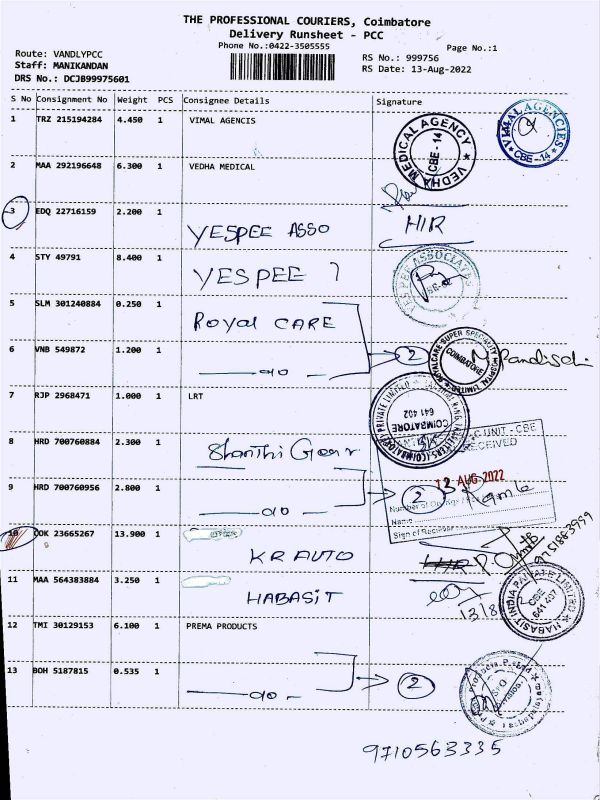 THE PROFESSIONAL COURIERS, Coimbatore
Delivery Runsheet - PCC
Phone No.:0422-3505555
Page No.:1
Route: VANDLYPCC
Staff: MANIKANDAN
DRS No.: DCJB99975601
RS No.: 999756
RS Date: 13-Aug-2022
S No Consignment No Weight PCS Consignee Details Signature
1 TRZ 215194284 4.450 1 VIMAL AGENCIS
VIMAL AGENCIES
CBE-14
VEDHA MEDICAL AGENCY
CBE-14
2 MAA 292196648 6.300 1 VEDHA MEDICAL
3 EDQ 22716159 2.200 1
YESPEE ASSO HIR
4 STY 49791 8.400 1
YESPEE
YESPEE ASSOCIATES
5 SLM 301240884 0.250 1
Royal CARE
6 VNB 549872 1.200 1
do 2
ROYALCARE SUPER SPECIALITY HOSPITAL LIMITED
COIMBATORE
7 RJP 2968471 1.000 1 LRT
PRIVATE LIMITED
COIMBATORE
641 402
8 HRD 700760884 2.300 1
Shanthi Gear
UNIT - CBE
RECEIVED
12 AUG 2022
9 HRD 700760956 2.800 1
do 2
Name
Sign of Receiver
10 COK 23665267 13.900 1
KR AUTO
11 MAA 564383884 3.250 1
HABASIT
13/8
HABASIT INDIA PRIVATE LIMITED
CBE
641 407
12 TMI 30129153 6.100 1 PREMA PRODUCTS
13 BOH 5187815 0.535 1
do 2
9710563335